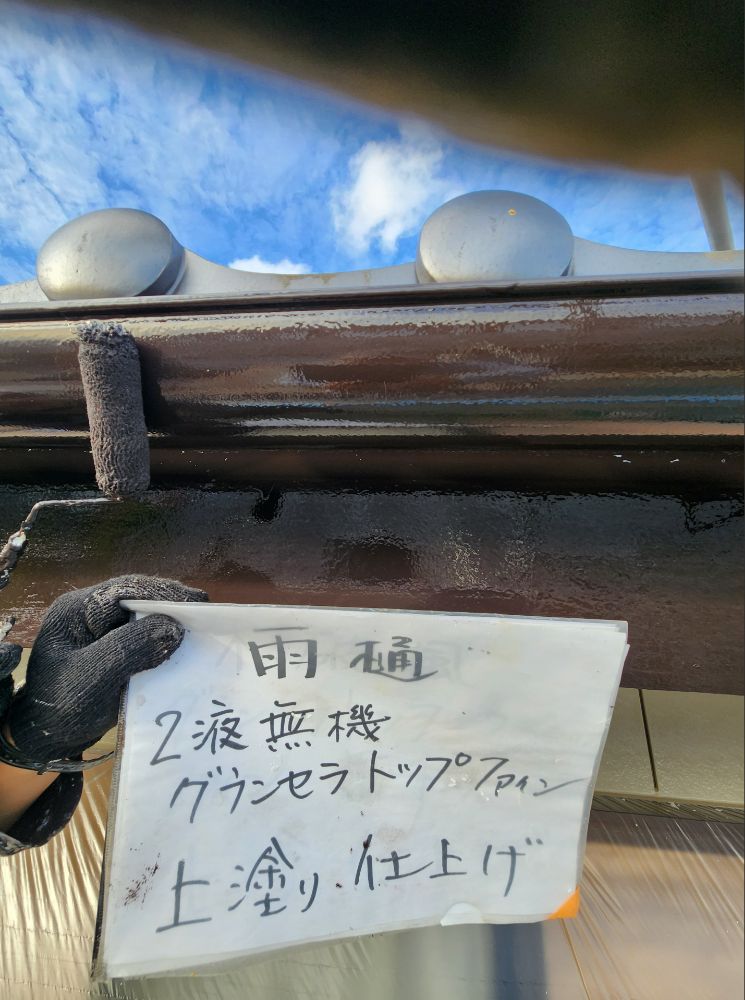 雨樋
2液無機
グランセラトップファイン
上塗り 仕上げ